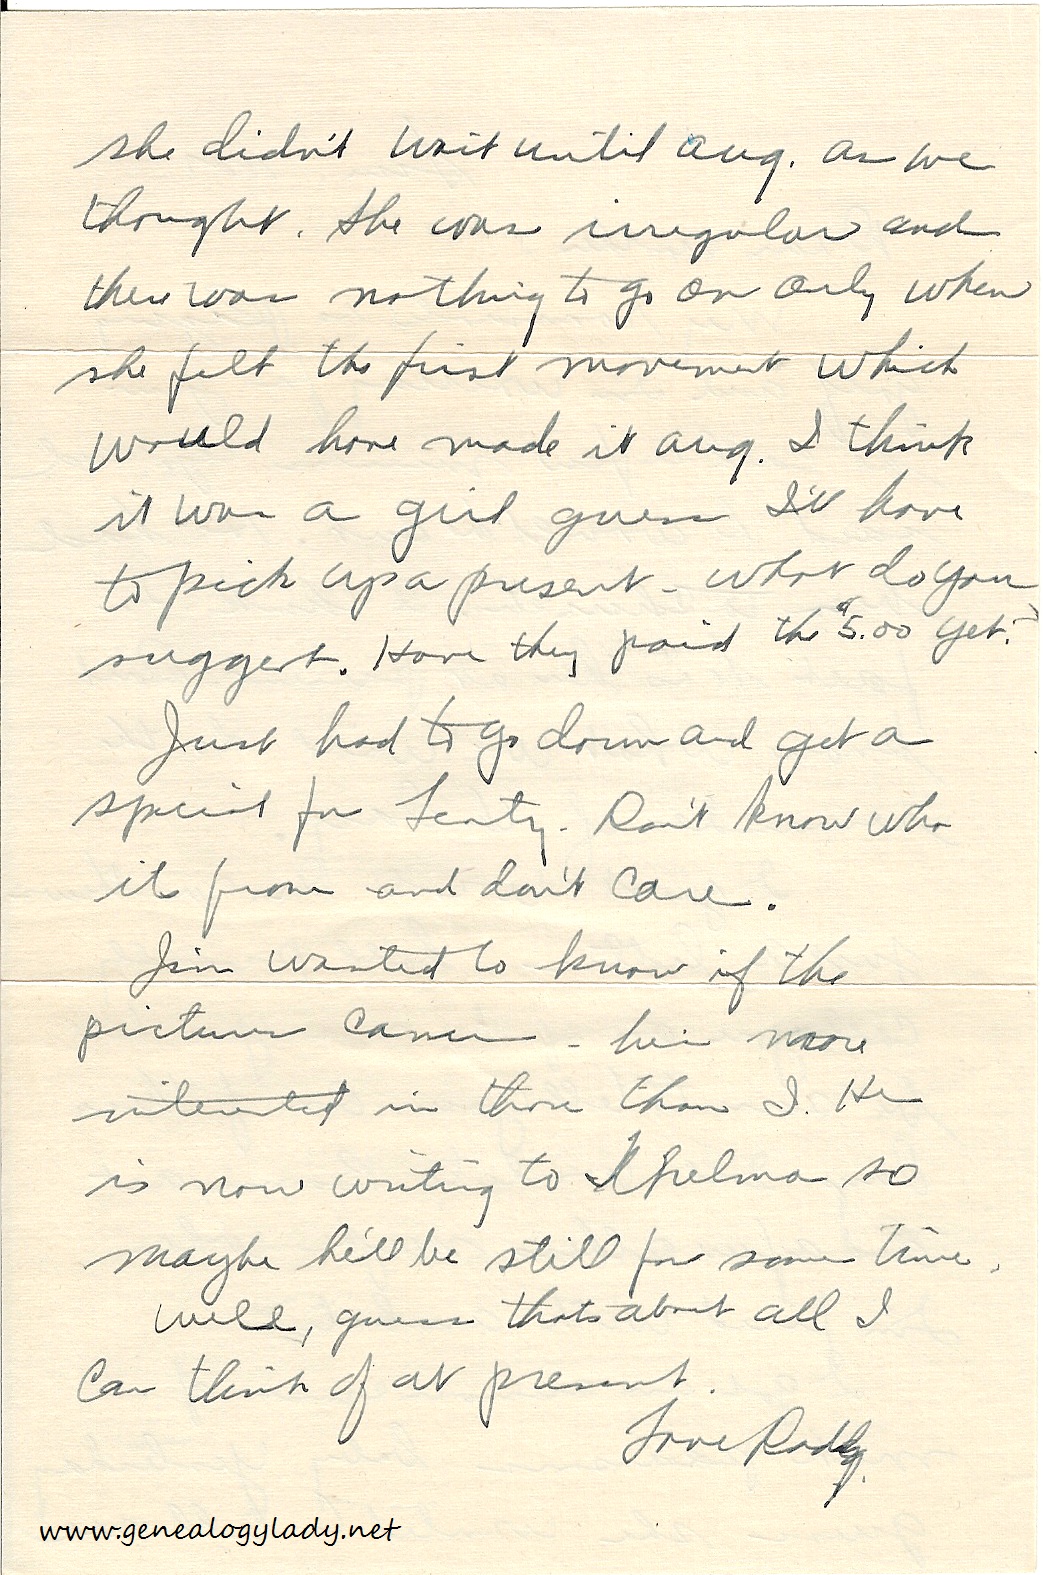 she didn't wait until Aug. as we
thought. She was irregular and
there was nothing to go on only when
she felt the first movement which
would have made it Aug. I think
it was a girl guess I'll have
to pick up a present - what do you
suggest. Have they paid the $5.00 yet?
Just had to go down and get a
special for Lenty. Don't know who
it from and don't care.
Jim wanted to know if the
pictures came - he's more
interested in those than I. He
is now writing to Thelma so
maybe he'll be still for some time.
Well, guess thats about all I
can think of at present.
Love Roddy.
www.genealogylady.net